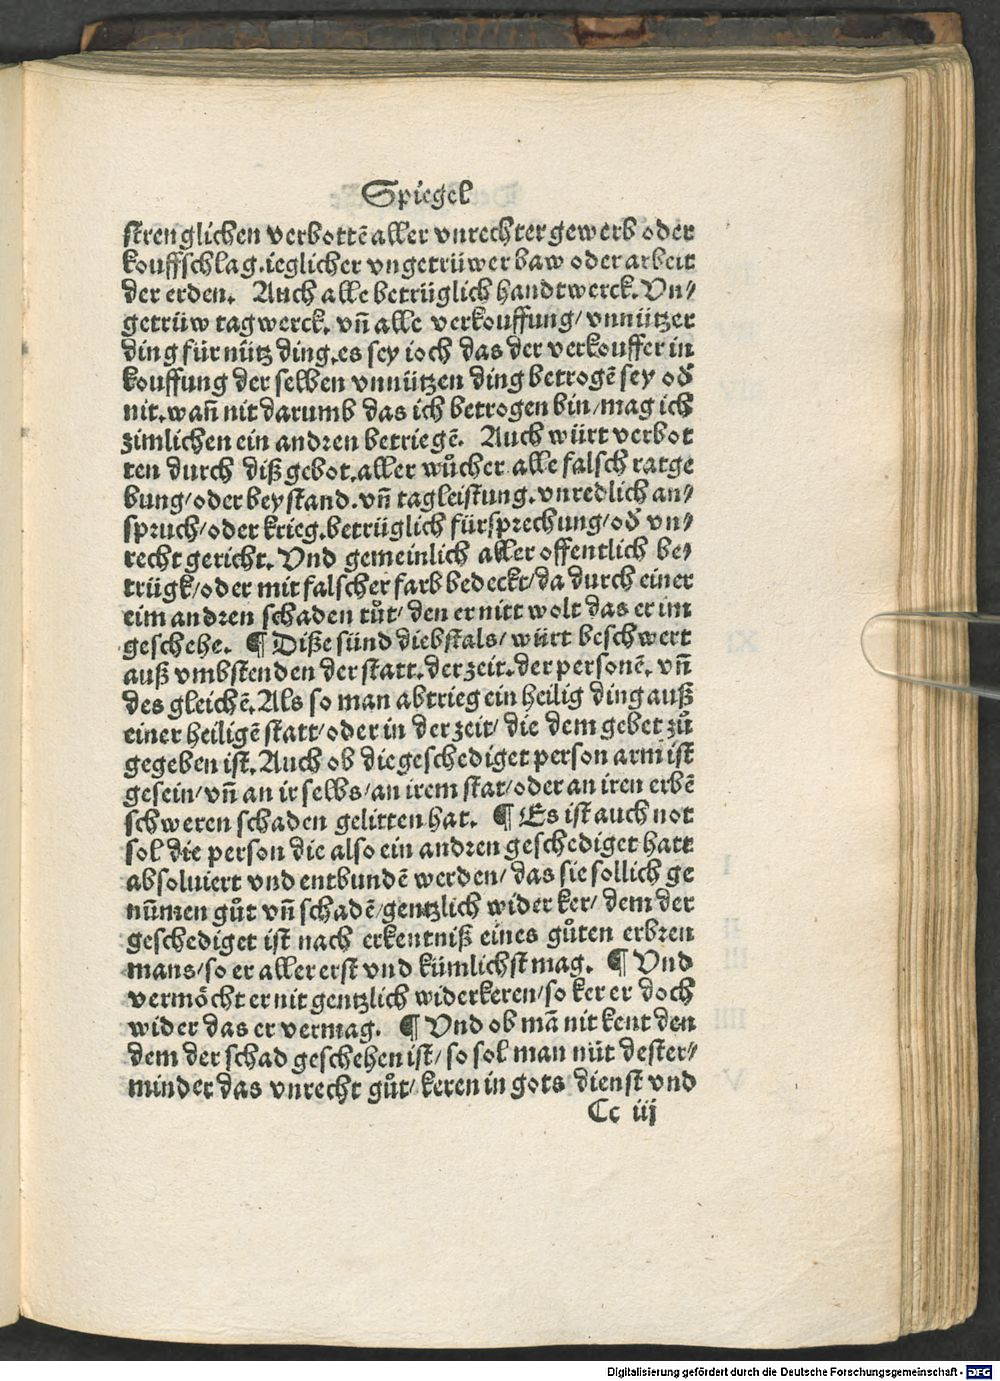 Spiegel
strenglichen verbottē aller vnrechter gewerb oder
kouffschlag.ieglicher vngetrüwer baw oder arbeit
der erden. Auch alle betrüglich handtwerck. Vn⸗
getrüw tagwerck. vñ alle verkouffung/ vnnützer
ding für nütz ding.es sey ioch das der verkouffer in
kouffung der selben vnnützen ding betrogē sey oď
nit.wañ nit darumb das ich betrogen bin/mag ich
zimlichen ein andren betriegē. Auch würt verbot
ten durch diß gebot.aller wůcher alle falsch ratge
bung/oder beystand.vñ tagleistung.vnredlich an⸗
spruch/oder krieg.betrüglich fürsprechung/oď vn⸗
recht gericht. Vnd gemeinlich aller offentlich be⸗
trügk/oder mit falscher farb bedeckt/da durch einer
eim andren schaden tůt/ den er nitt wolt das er im
geschehe. ¶ Diße sünd diebstals/ würt beschwert
auß vmbstenden der statt.der zeit.der personē. vñ
des gleichē.Als so man abtrieg ein heilig ding auß
einer heiligē statt/oder in der zeit/ die dem gebet zů
gegeben ist.Auch ob die geschediget person arm ist
gesein/vñ an ir selbs/an irem stat/oder an iren erbē
schweren schaden gelitten hat. ¶ Es ist auch not
sol die person die also ein andren geschediget hatt
absoluiert vnd entbundē werden/ das sie sollich ge
nūmen gůt vñ schadē/gentzlich wider ker/ dem der
geschediget ist nach erkentniß eines gůten erbren
mans/so er aller erst vnd kümlichst mag. ¶ Vnd
vermöcht er nit gentzlich widerkeren/so ker er doch
wider das er vermag. ¶ Vnd ob mā nit kent den
dem der schad geschehen ist/ so sol man nüt dester⸗
minder das vnrecht gůt/ keren in gots dienst vnd
Cc iij
Digitalisierung gefördert durch die Deutsche Forschungsgemeinschaft - DFG